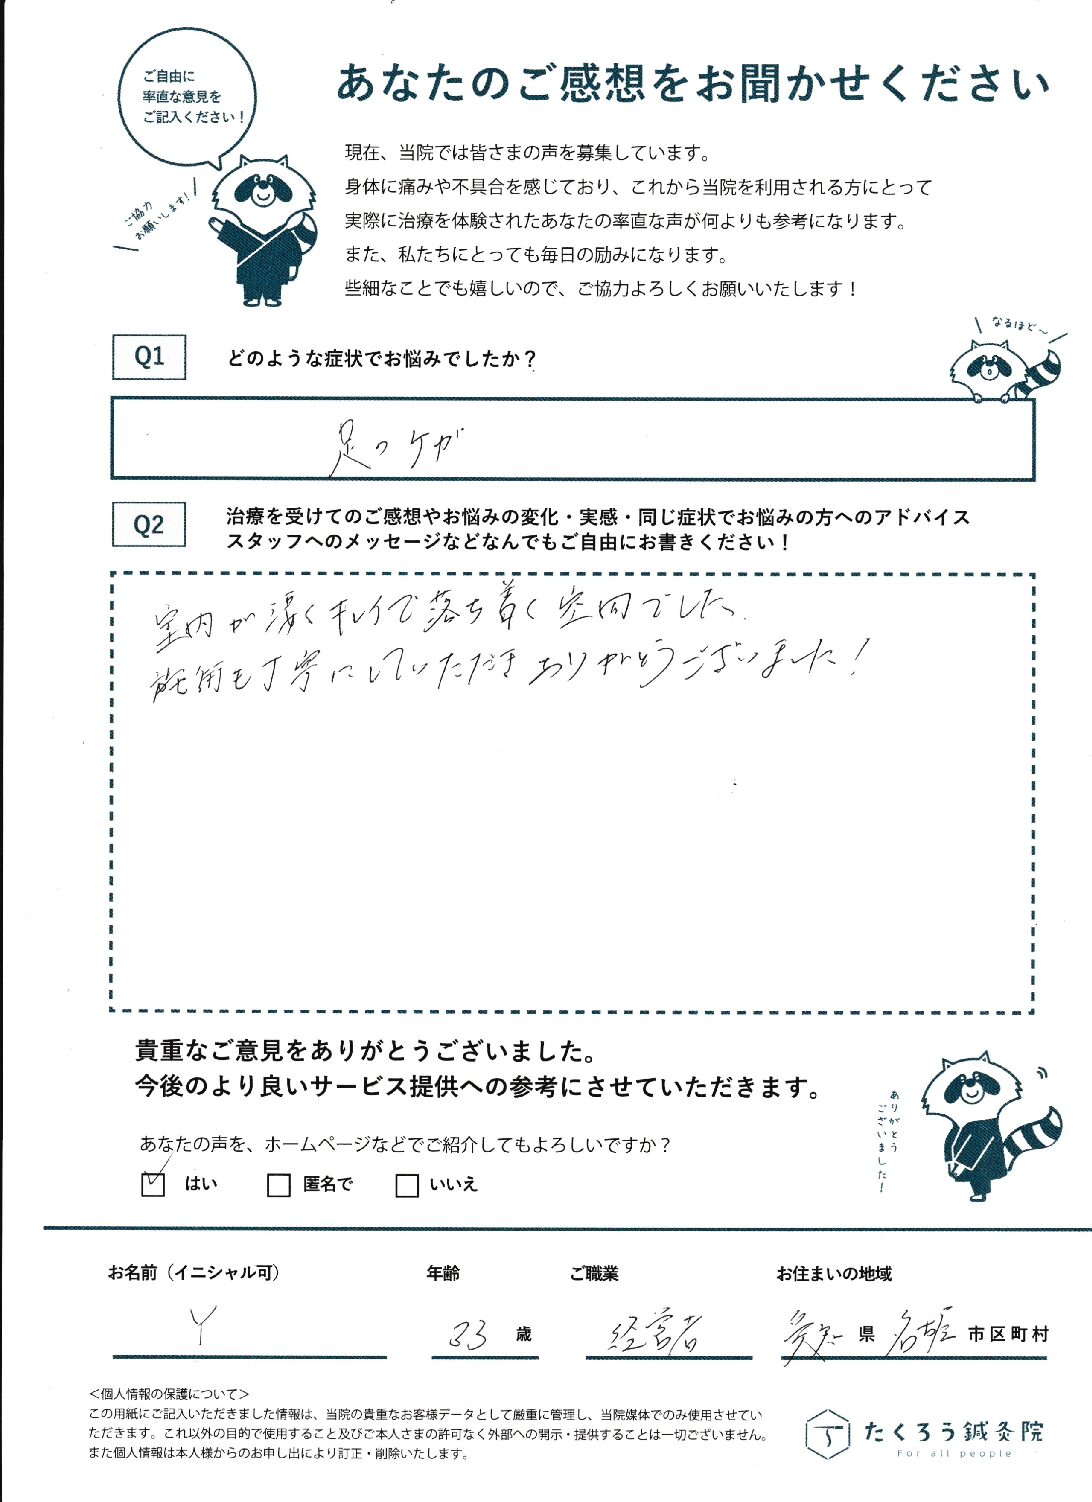 ご自由に
率直な意見を
ご記入ください！
あなたのご感想をお聞かせください
ご協力
お願いします！
現在、当院では皆さまの声を募集しています。
身体に痛みや不具合を感じており、これから当院を利用される方にとって
実際に治療を体験されたあなたの率直な声が何よりも参考になります。
また、私たちにとっても毎日の励みになります。
些細なことでも嬉しいので、ご協力よろしくお願いいたします！
なるほど〜
Q1
どのような症状でお悩みでしたか？
足のケガ
Q2
治療を受けてのご感想やお悩みの変化・実感・同じ症状でお悩みの方へのアドバイス
スタッフへのメッセージなどなんでもご自由にお書きください！
室内が凄くキレイで落ち着く空間でした、
施術も丁寧にしていただきありがとうございました！
貴重なご意見をありがとうございました。
今後のより良いサービス提供への参考にさせていただきます。
ありがとう
ございました！
あなたの声を、ホームページなどでご紹介してもよろしいですか？
はい 匿名で いいえ
お名前（イニシャル可） 年齢 ご職業 お住まいの地域
Y 33 歳 経営者 愛知 県 名古屋 市区町村
＜個人情報の保護について＞
この用紙にご記入いただきました情報は、当院の貴重なお客様データとして厳重に管理し、当院媒体でのみ使用させてい
ただきます。これ以外の目的で使用すること及びご本人さまの許可なく外部への開示・提供することは一切ございません。
また個人情報は本人様からのお申し出により訂正・削除いたします。
たくろう鍼灸院
For all people